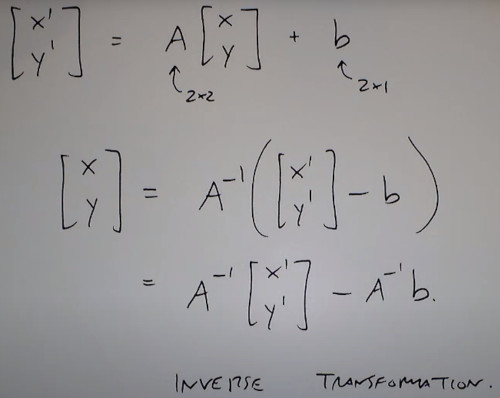 [x' y'] = A [x y] + b
2×2 2×1
[x y] = A⁻¹([x' y'] − b)
= A⁻¹ [x' y'] − A⁻¹b.
INVERSE TRANSFORMATION.